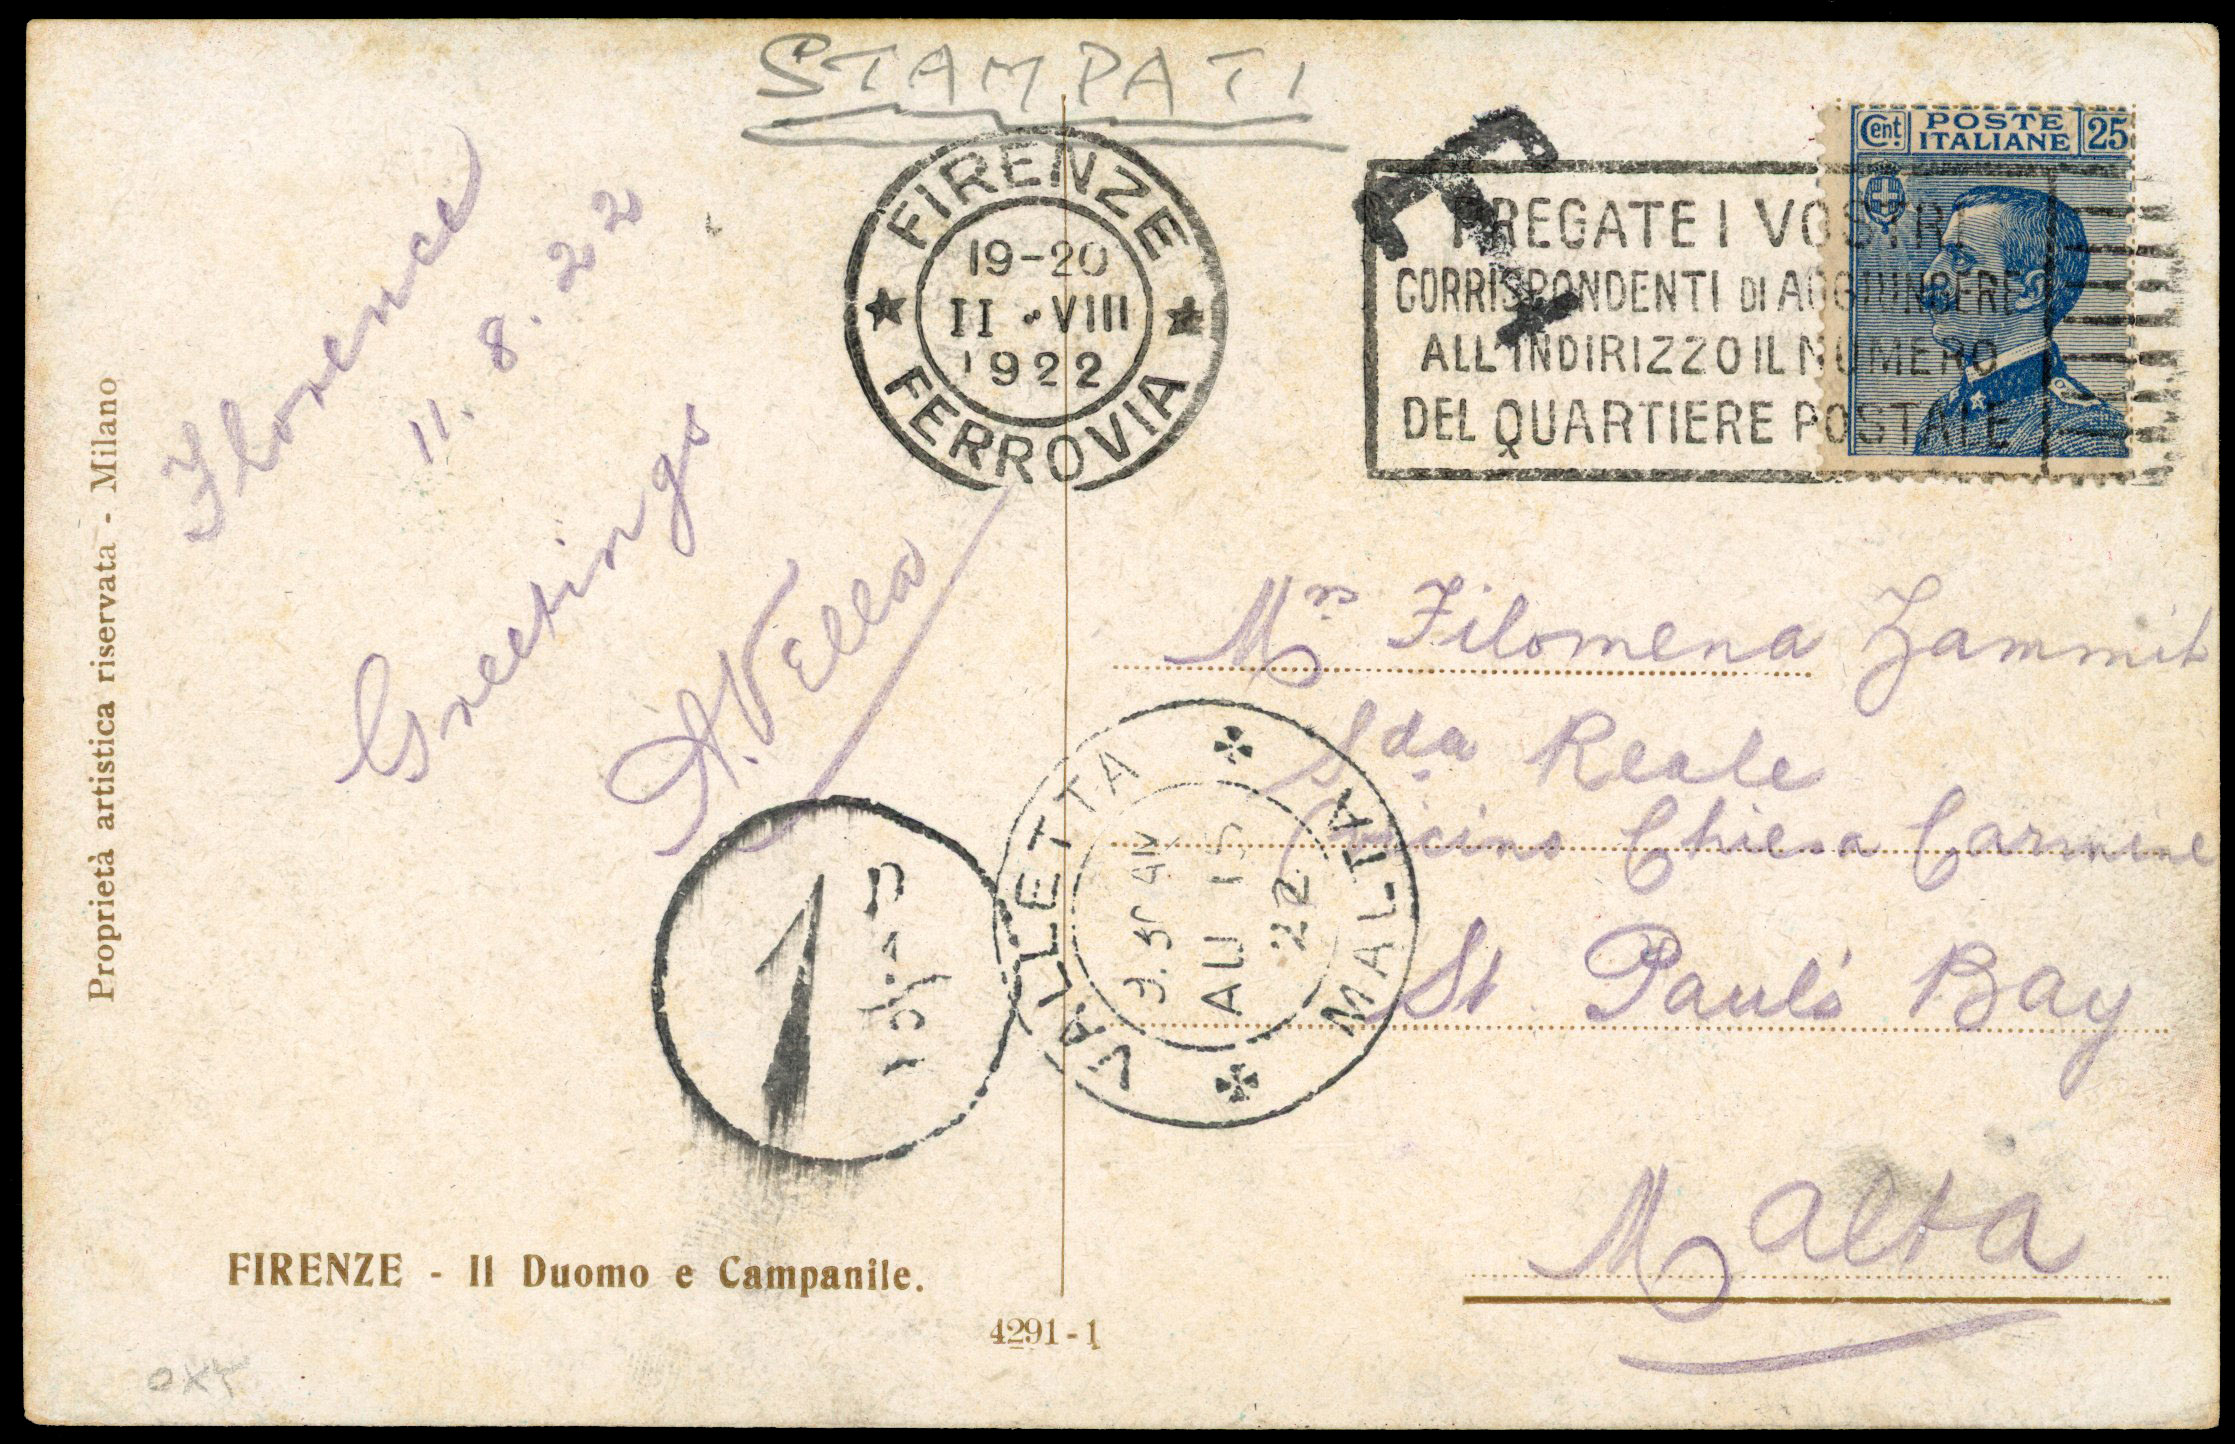 STAMPATI
FIRENZE
19-20
11·VIII
1922
FERROVIA
T
PREGATE I VOSTRI
CORRISPONDENTI DI AGGIUNGERE
ALL'INDIRIZZO IL NUMERO
DEL QUARTIERE POSTALE
Cent. POSTE ITALIANE 25
Florence
11.8.22
Greetings
A. Vella
Proprietà artistica riservata - Milano
Mrs Filomena Zammit
Sda Reale
Vicino Chiesa Carmine
St. Paul's Bay
Malta
VALLETTA
9.30 AM
AU 15
22
MALTA
1
FIRENZE - Il Duomo e Campanile.
4291-1